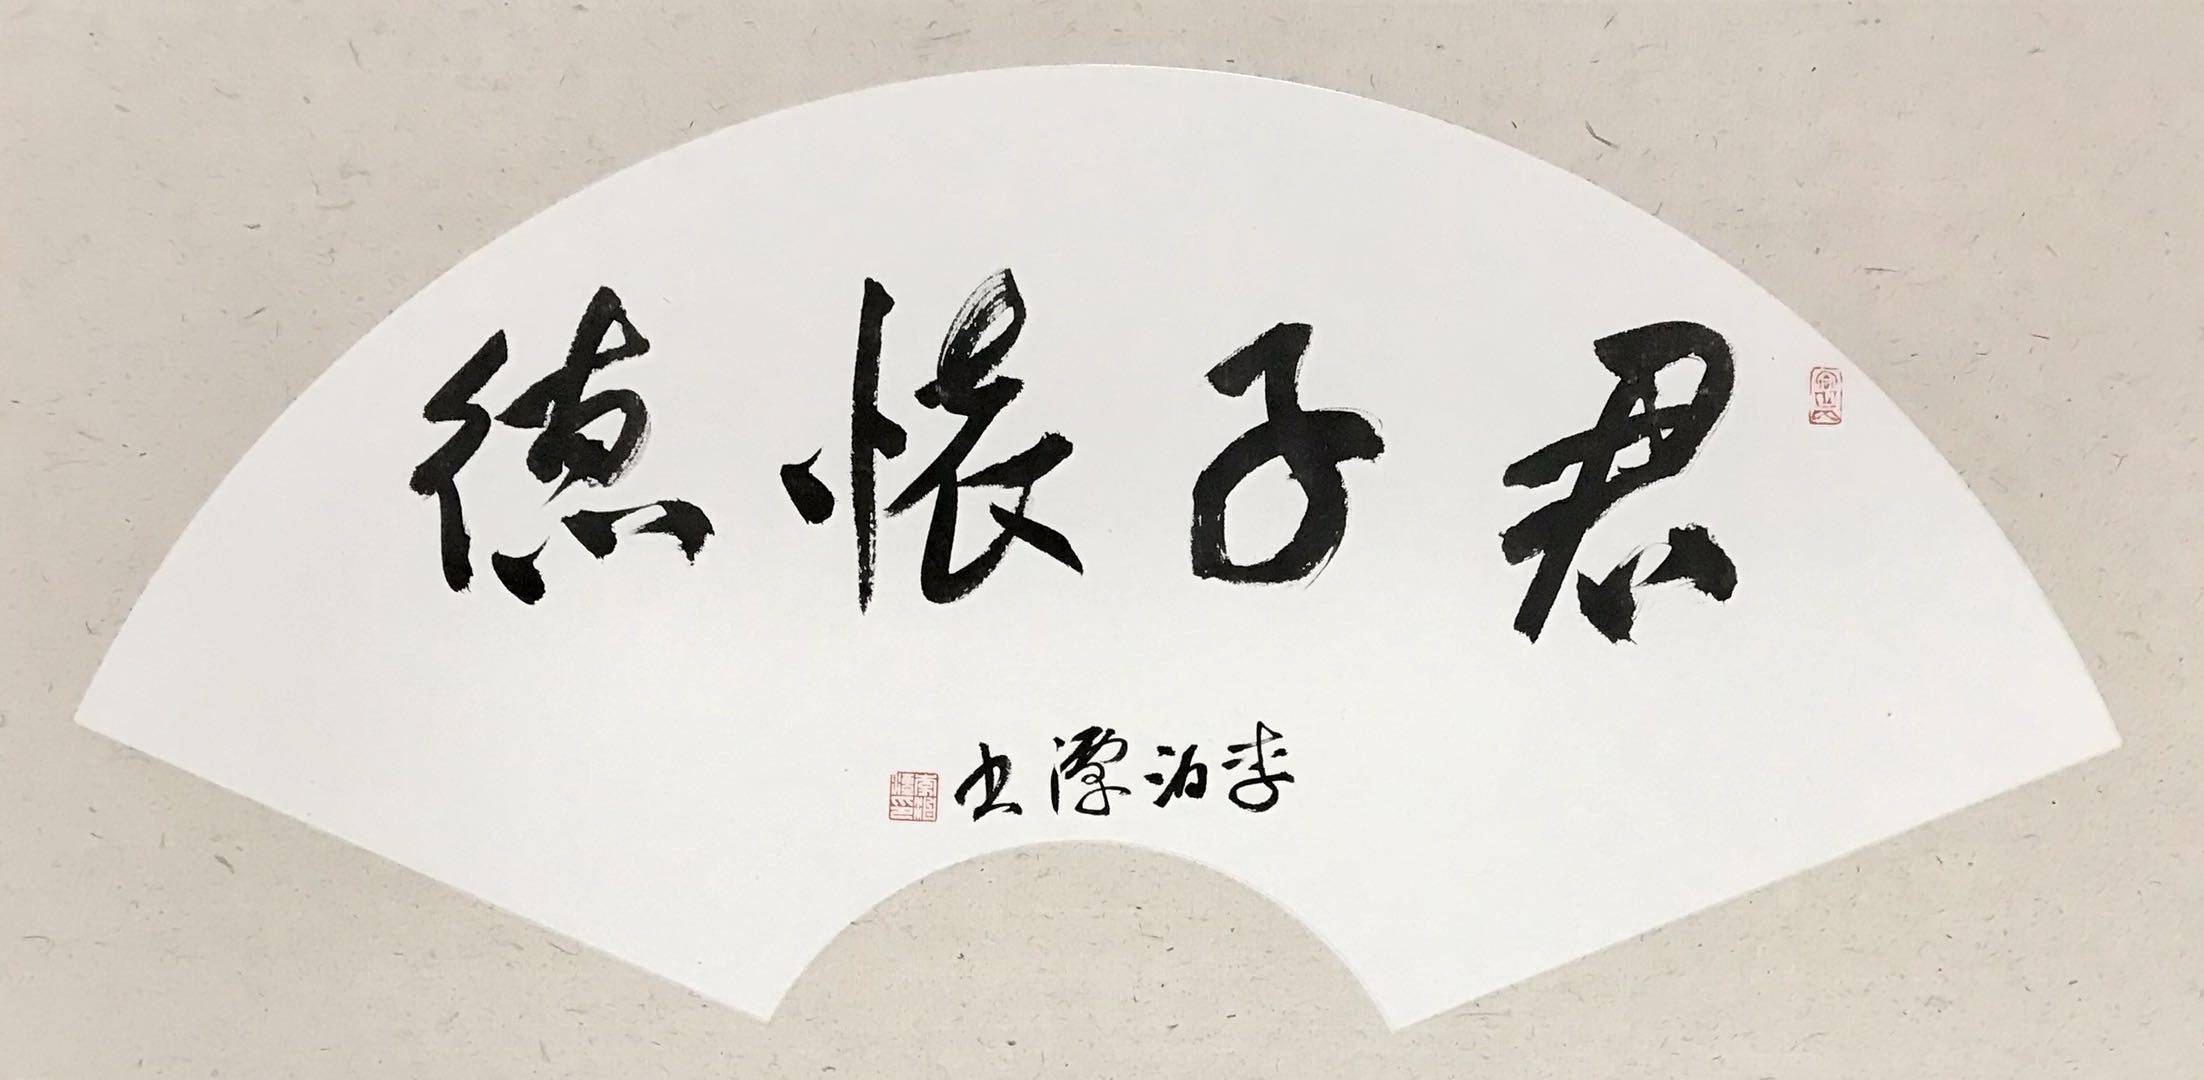 君子懷德
李泊潭书